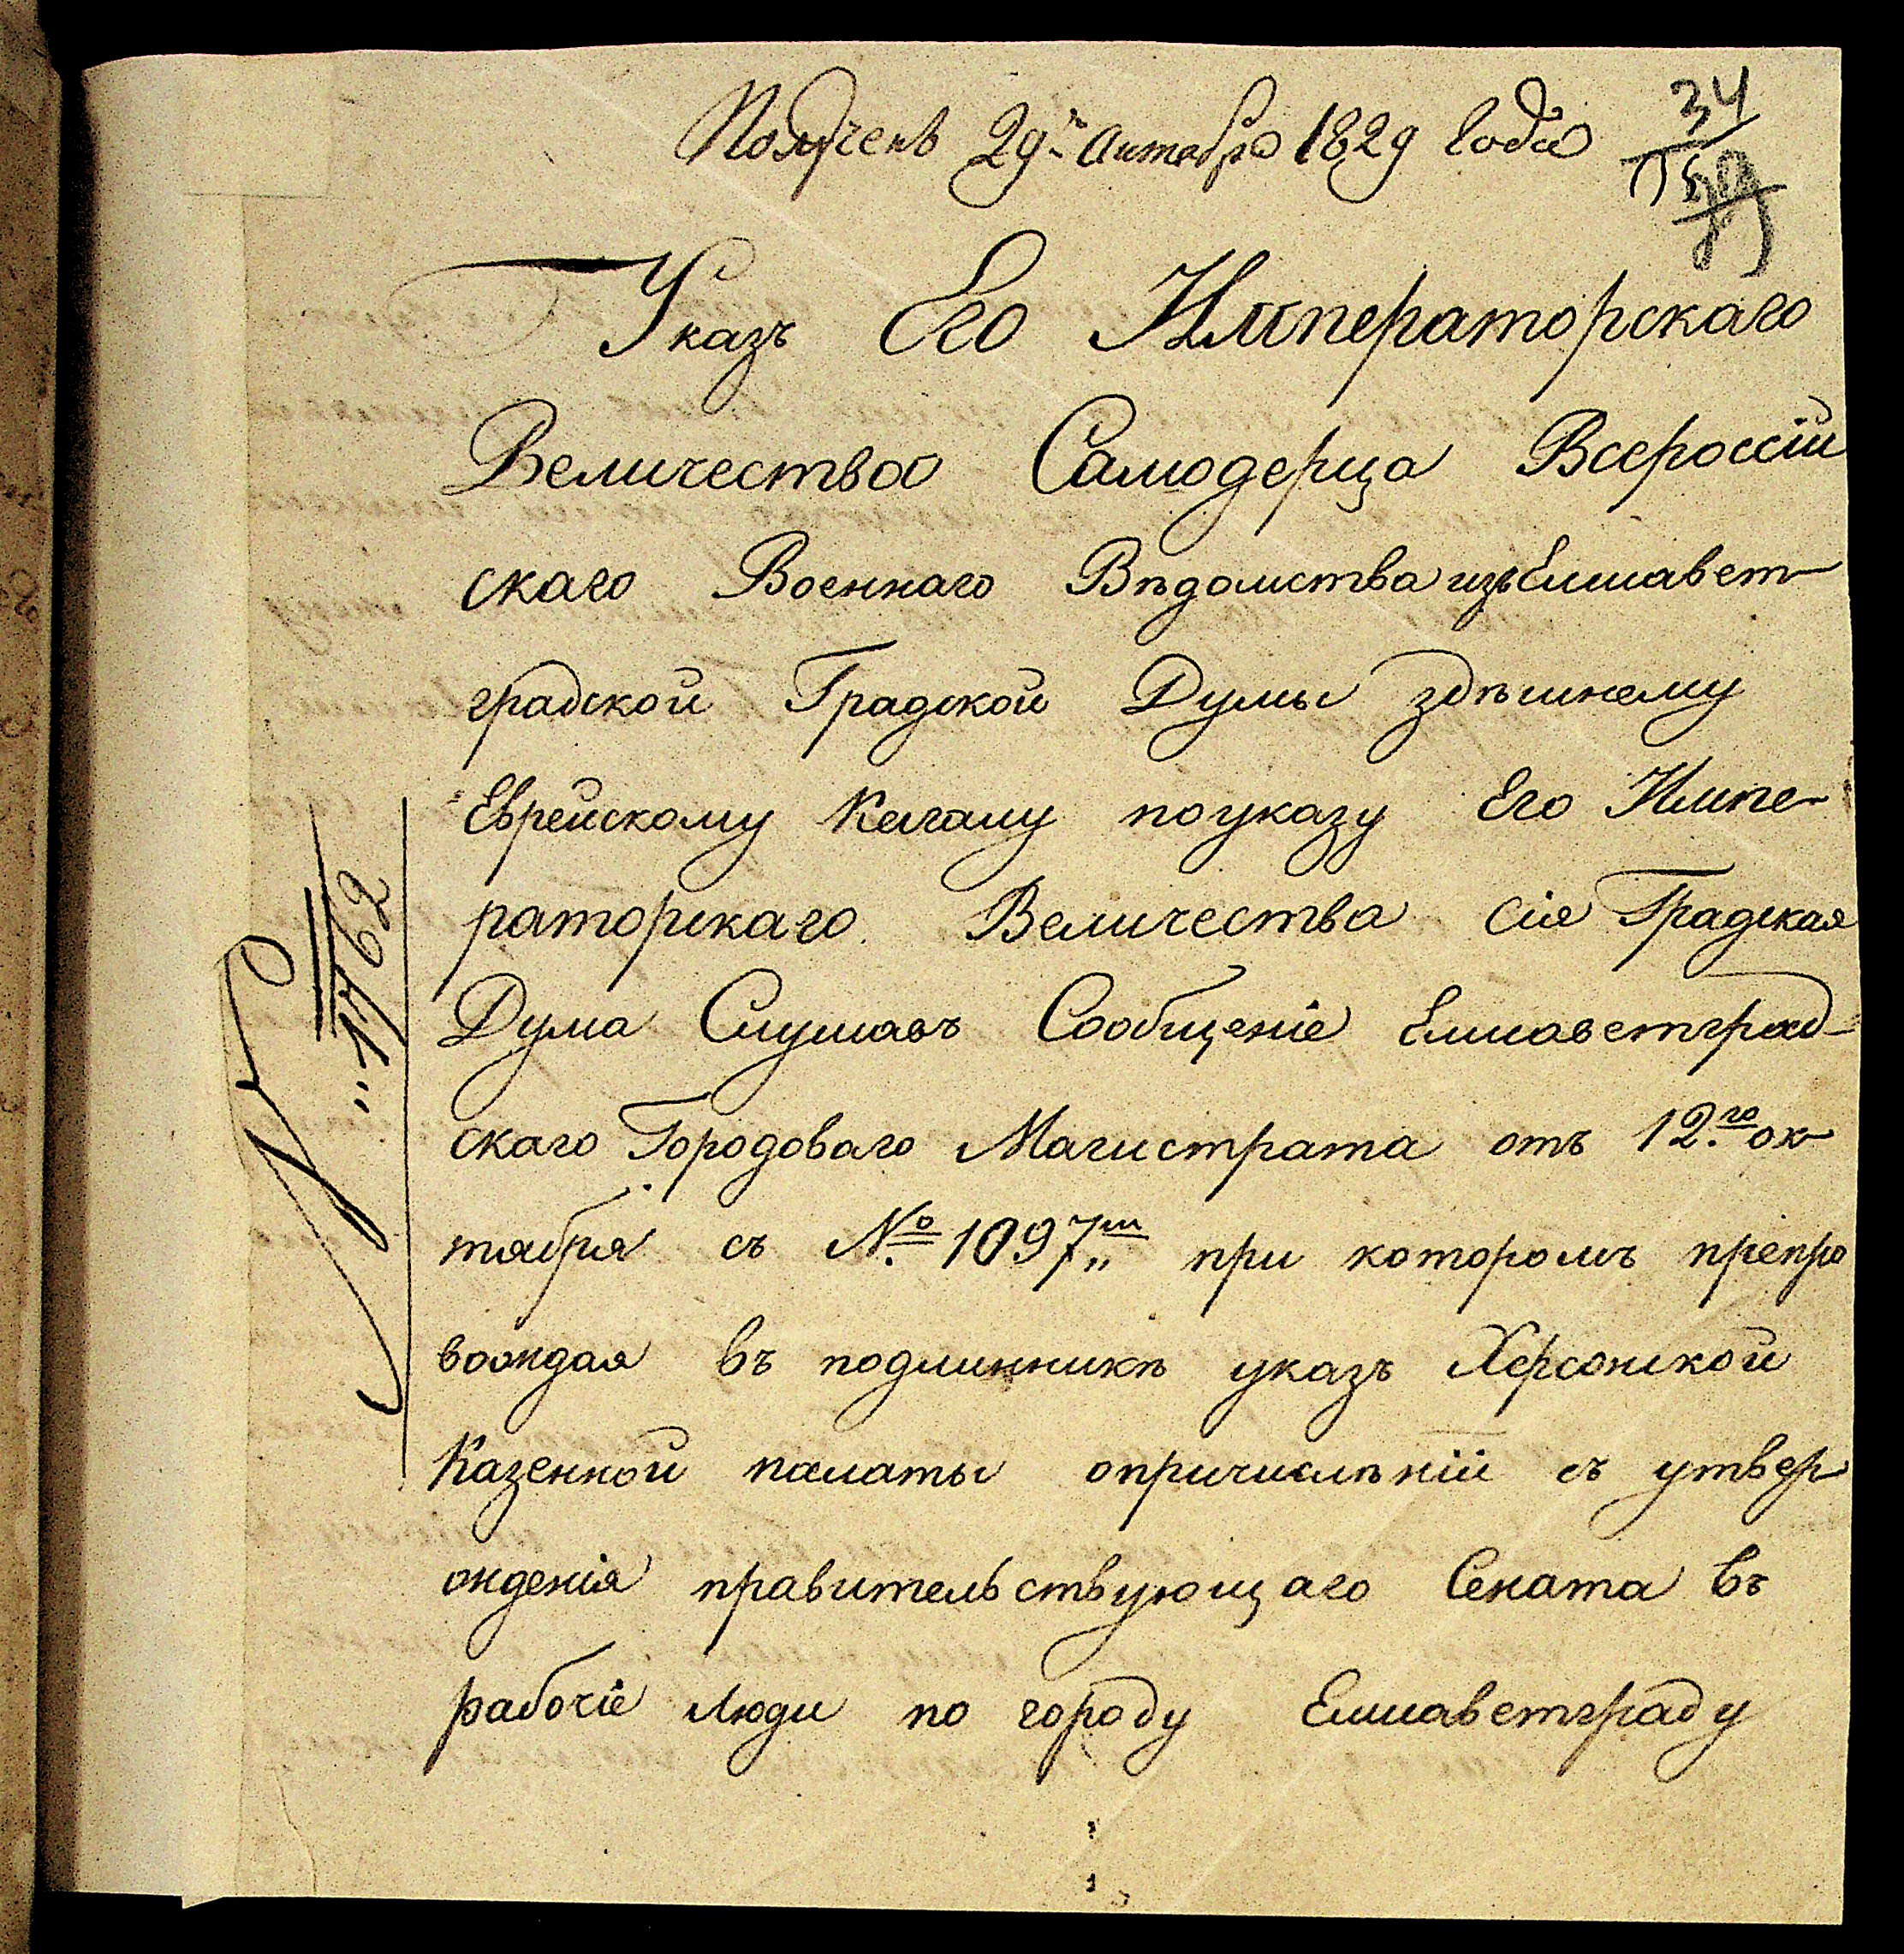 Полученъ 29го Октебра 1829 года
34
Указъ Его Императорскаго
Величества Самодерца Всероссій
скаго Военнаго Вѣдомства изъ Елисавет-
градской Градской Думы здѣшнему
Еврейскому Кагалу по указу Его Импе-
раторскаго Величества Сія Градская
Дума Слушавъ Сообщеніе Елисаветград-
скаго Городоваго Магистрата отъ 12.го ок-
тября съ №. 1097„м при которомъ препро
вождая въ подлинникѣ указъ Херсонской
Казенной палаты опричислѣніи съ утвер
жденія правительствующаго Сената въ
рабочіе люди по городу Елисаветграду
№ „1762